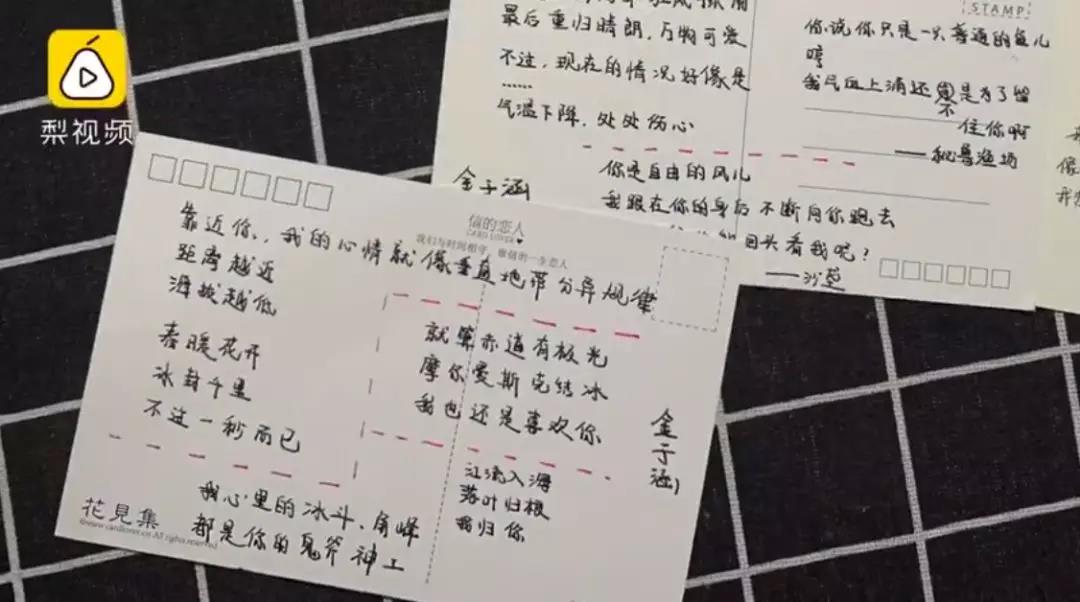 梨视频
最后重归晴朗,万物可爱
不过,现在的情况好像是
……
气温下降,处处伤心
金子涵
STAMP
你说你只是一只普通的鱼儿
哼
我气血上涌还不是为了留
住你啊
——秘鲁渔场
你是自由的风儿
我跟在你的身后不断向你跑去
回头看我呢?
——沙草
信的恋人
CARD LOVER
我们与时间相守,做信的一生恋人
靠近你,我的心情就像垂直地带分异规律
距离越近
海拔越低
春暖花开
冰封千里
不过一秒而已
就算赤道有极光
摩尔曼斯克结冰
我也还是喜欢你
金子涵
江流入海
落叶归根
我归你
我心里的冰斗、角峰
都是你的鬼斧神工
花見集
©www.cardlover.cn All rights reserved